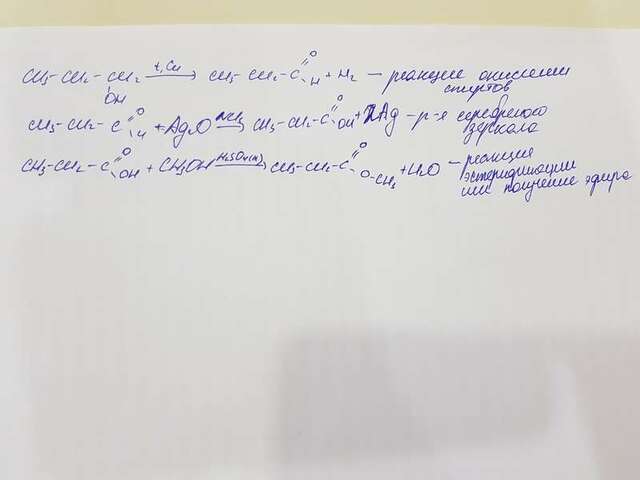 CH3-CH2-CH2 t, Cu → CH3-CH2-C O H + H2 – реакция окисления
OH спиртов
CH3-CH2-C O H + Ag2O NH3 → CH3-CH2-C O OH + 2Ag – р-я серебряного
зеркала
CH3-CH2-C O OH + CH3OH H2SO4(к) → CH3-CH2-C O O-CH3 + H2O – реакция
этерификации
или получение эфира